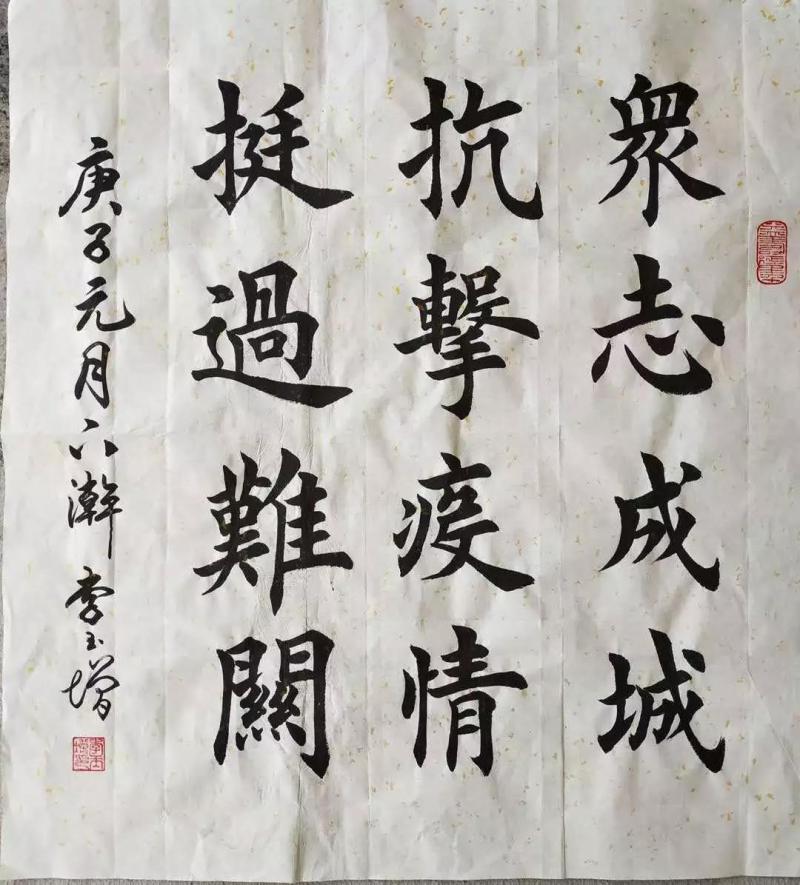 眾志成城
抗擊疫情
挺過難關
庚子元月下澣 李玉增